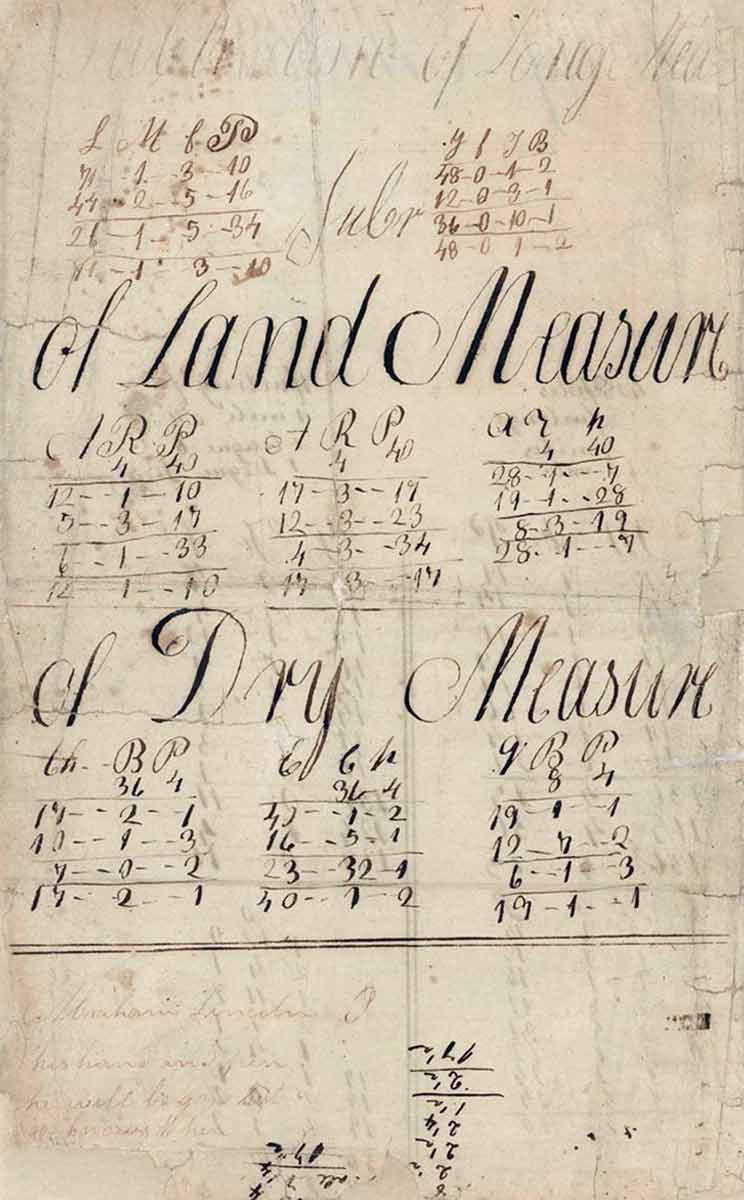 Subtraction of Long Mea
L M f P
71 - 1 - 3 - 10
44 - 2 - 5 - 16
26 - 1 - 5 - 34
71 - 1 3 - 10
Subr
Y f I B
48 - 0 - 1 - 2
12 - 0 - 3 - 1
36 - 0 - 10 - 1
48 - 0 1 - 2
of Land Measure
A R P
4 40
12 - 1 - 10
5 - 3 - 17
6 - 1 - 33
12 1 - 10
A R P
4 40
17 - 3 - 17
12 - 3 - 23
4 - 3 - 34
17 - 3 - 17
a r p
4 40
28 - 1 - 7
19 - 1 - 28
8 - 3 - 19
28 - 1 - 7
of Dry Measure
Ch B P
36 4
17 - 2 - 1
10 - 1 - 3
7 - 0 - 2
17 - 2 - 1
C p
36 - 4
40 - 1 - 2
16 - 5 - 1
23 - 32 - 1
40 - 1 - 2
q B P
8 4
19 - 1 1
12 - 7 - 2
6 - 1 - 3
19 - 1 - 1
Abraham Lincoln
his hand and pen
he will be good but
god knows When
17½
2½
1½
2¼
2½
2½
8
17½